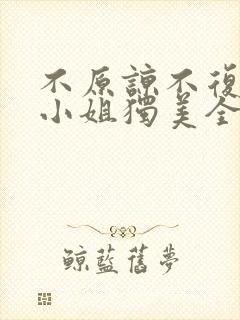 不原諒不復
小姐獨美全
鯨藍舊夢